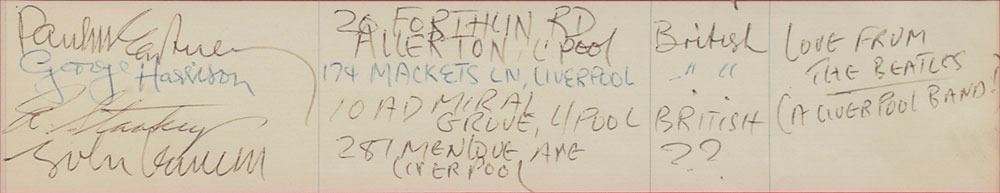 Paul McCartney 20 FORTHLIN RD British LOVE FROM
ALLERTON, L'pool THE BEATLES
George Harrison 174 MACKETS LN, LIVERPOOL " " (A LIVERPOOL BAND!)
R. Starkey 10 ADMIRAL BRITISH
GROVE, L/POOL
John Lennon 251, MENLOVE AVE ??
LIVERPOOL